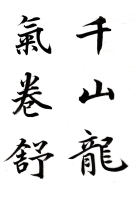 千山龍
氣卷舒